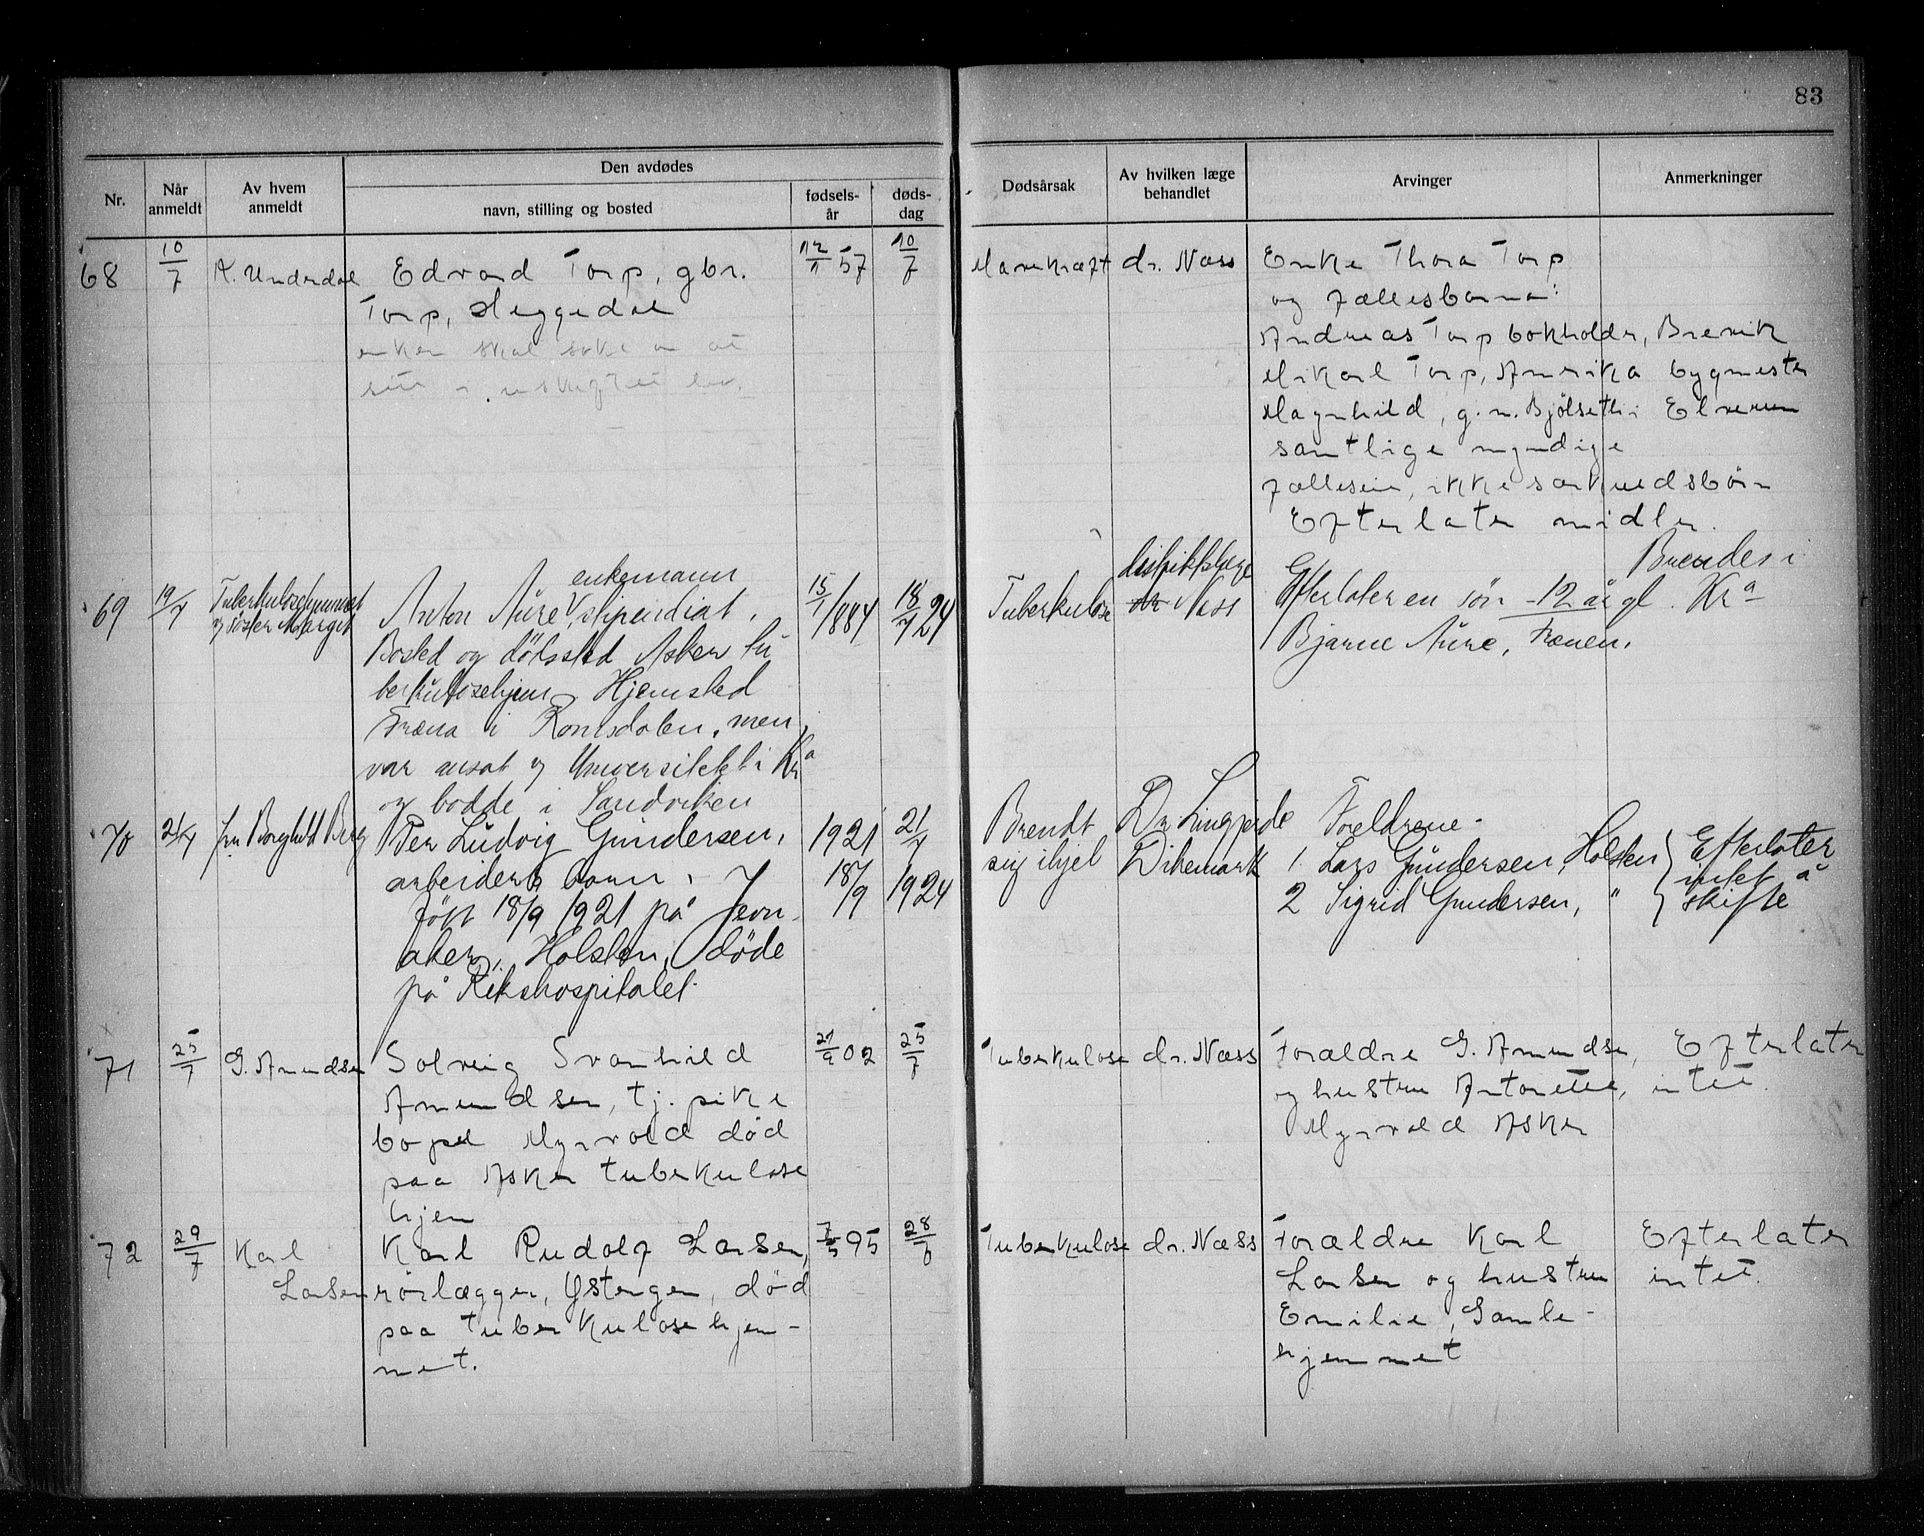 83
Nr.
Når anmeldt
Av hvem anmeldt
Den avdødes
navn, stilling og bosted
fødsels-år
døds-dag
Dødsårsak
Av hvilken læge behandlet
Arvinger
Anmerkninger
68
10/7
A. Underdal
Edvard Torp, gbr.
Torp, Heggedal
enken skal søke om at
12/11 57
10/7
Mavekræft
dr. Næss
Enke Thora Torp
og fællesbarna:
Andreas Torp bokholder, Brevik
Mikael Torp, Amerika bygmester
Magnhild, g.m. Bjölseth i Elverum
samtlige myndige
fælleseie, ikke særkuldsbörn
Efterlater midler.
69
19/7
Tuberkulosehjemmet
og søster Margit
enkemann
Anton Aure, stipendiat.
Bosted og dödssted Asker tu-
berkulosehjem. Hjemsted
Fræna i Romsdalen, men
var ansat v Universitetet i Kra
og bodde i Sandviken
15/1 1884
18/7 24
Tuberkulose
distriktslæge
dr Næss
Efterlater en sön – 12 år gl.
Bjarne Aure, Frænen.
Brendes i
Kra
70
21/7
fru Borghild Berg
Per Ludvig Gundersen,
arbeiders barn.
Födt 18/9 1921 på Jevn-
aker, Holsten, döde
på Rikshospitalet.
1921
18/9
21/7
1924
Brendt
sig ihjel
Dr Lingjærde
Dikemark
Foreldrene –
1. Lars Gundersen, Holsten
2 Sigrid Gundersen, "
Efterlater
intet å
skifte
71
25/7
G. Amundsen
Solveig Svanhild
Amundsen, tj. pike
bopæl Myrvold død
paa Asker tuberkulose
hjem
27/9 02
25/7
Tuberkulose
dr. Næss
Forældre G. Amundsen,
og hustru Antonette,
Myrvold Asker
Efterlater
intet.
72
29/7
Karl
Larsen
Karl Rudolf Larsen,
rörlægger, Ystengen, död
paa tuberkulosehjem-
met.
7/5 95
28/7
Tuberkulose
dr. Næss
Forældre Karl
Larsen og hustru
Emilie, Gamle-
hjemmet
Efterlater
intet.